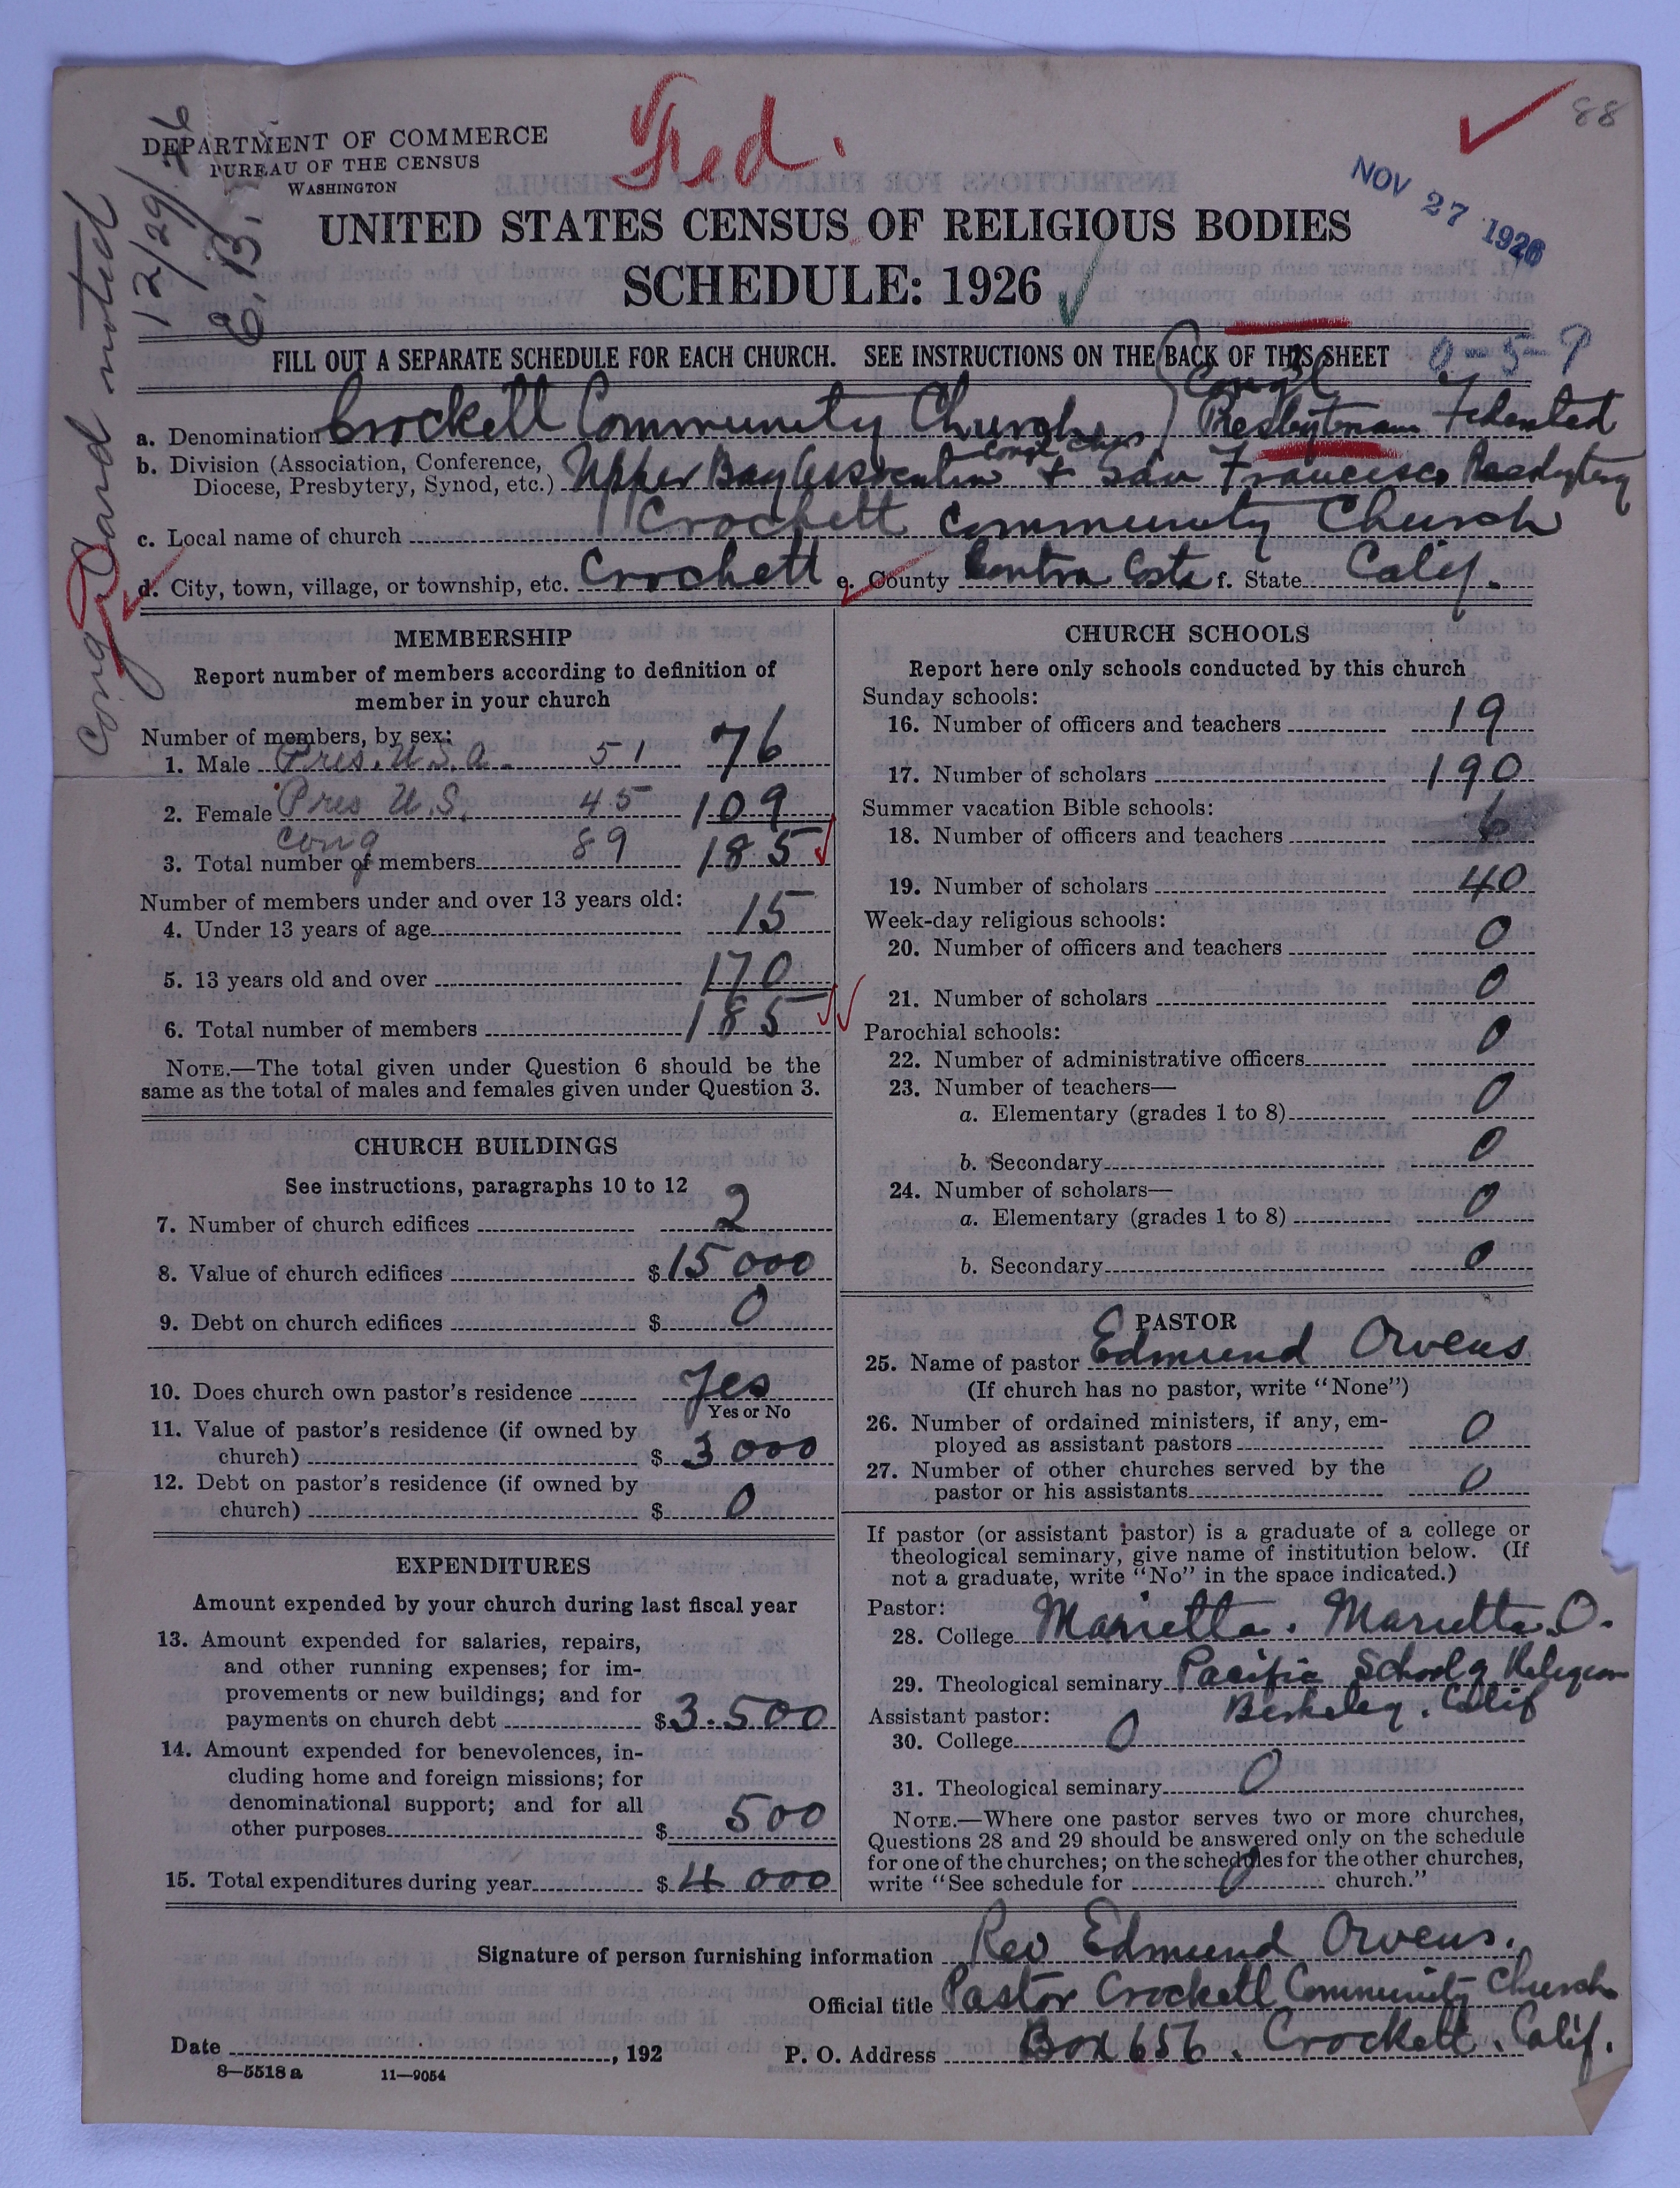 Fed.
88
NOV 27 1926
Cong Card noted
12/29/26
E.B.
DEPARTMENT OF COMMERCE
BUREAU OF THE CENSUS
WASHINGTON
UNITED STATES CENSUS OF RELIGIOUS BODIES
SCHEDULE: 1926
FILL OUT A SEPARATE SCHEDULE FOR EACH CHURCH. SEE INSTRUCTIONS ON THE BACK OF THIS SHEET 0-5-9
Cong'l
a. Denomination Crockett Community Church Presbyterian Federated
b. Division (Association, Conference, Diocese, Presbytery, Synod, etc.) Upper Bay Association + San Francisco Presbytery
c. Local name of church Crockett Community Church
d. City, town, village, or township, etc. Crockett e. County Contra Costa f. State Calif.
MEMBERSHIP
Report number of members according to definition of
member in your church
Number of members, by sex:
1. Male Pres. U.S.A. 51 76
2. Female Pres U.S. 45 109
3. Total number of members Cong 89 185
Number of members under and over 13 years old:
4. Under 13 years of age 15
5. 13 years old and over 170
6. Total number of members 185
NOTE.—The total given under Question 6 should be the
same as the total of males and females given under Question 3.
CHURCH BUILDINGS
See instructions, paragraphs 10 to 12
7. Number of church edifices 2
8. Value of church edifices $15000
9. Debt on church edifices $0
10. Does church own pastor's residence Yes
Yes or No
11. Value of pastor's residence (if owned by
church) $3000
12. Debt on pastor's residence (if owned by
church) $0
EXPENDITURES
Amount expended by your church during last fiscal year
13. Amount expended for salaries, repairs,
and other running expenses; for im-
provements or new buildings; and for
payments on church debt $3.500
14. Amount expended for benevolences, in-
cluding home and foreign missions; for
denominational support; and for all
other purposes $500
15. Total expenditures during year $4000
CHURCH SCHOOLS
Report here only schools conducted by this church
Sunday schools:
16. Number of officers and teachers 19
17. Number of scholars 190
Summer vacation Bible schools:
18. Number of officers and teachers 6
19. Number of scholars 40
Week-day religious schools:
20. Number of officers and teachers 0
21. Number of scholars 0
Parochial schools:
22. Number of administrative officers 0
23. Number of teachers—
a. Elementary (grades 1 to 8) 0
b. Secondary 0
24. Number of scholars—
a. Elementary (grades 1 to 8) 0
b. Secondary 0
PASTOR
25. Name of pastor Edmund Owens
(If church has no pastor, write "None")
26. Number of ordained ministers, if any, em-
ployed as assistant pastors 0
27. Number of other churches served by the
pastor or his assistants 0
If pastor (or assistant pastor) is a graduate of a college or
theological seminary, give name of institution below. (If
not a graduate, write "No" in the space indicated.)
Pastor:
28. College Marietta. Marietta O.
29. Theological seminary Pacific School of Religion
Berkeley. Calif
Assistant pastor:
30. College 0
31. Theological seminary 0
NOTE.—Where one pastor serves two or more churches,
Questions 28 and 29 should be answered only on the schedule
for one of the churches; on the schedules for the other churches,
write "See schedule for 0 church."
Signature of person furnishing information Rev Edmund Owens.
Official title Pastor Crockett Community Church
Date , 192 P. O. Address Box 656. Crockett. Calif.
8—5518 a 11—9054